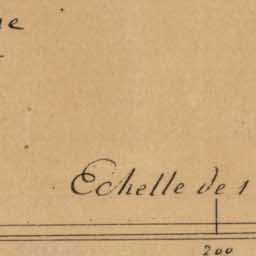 Echelle de 1
200